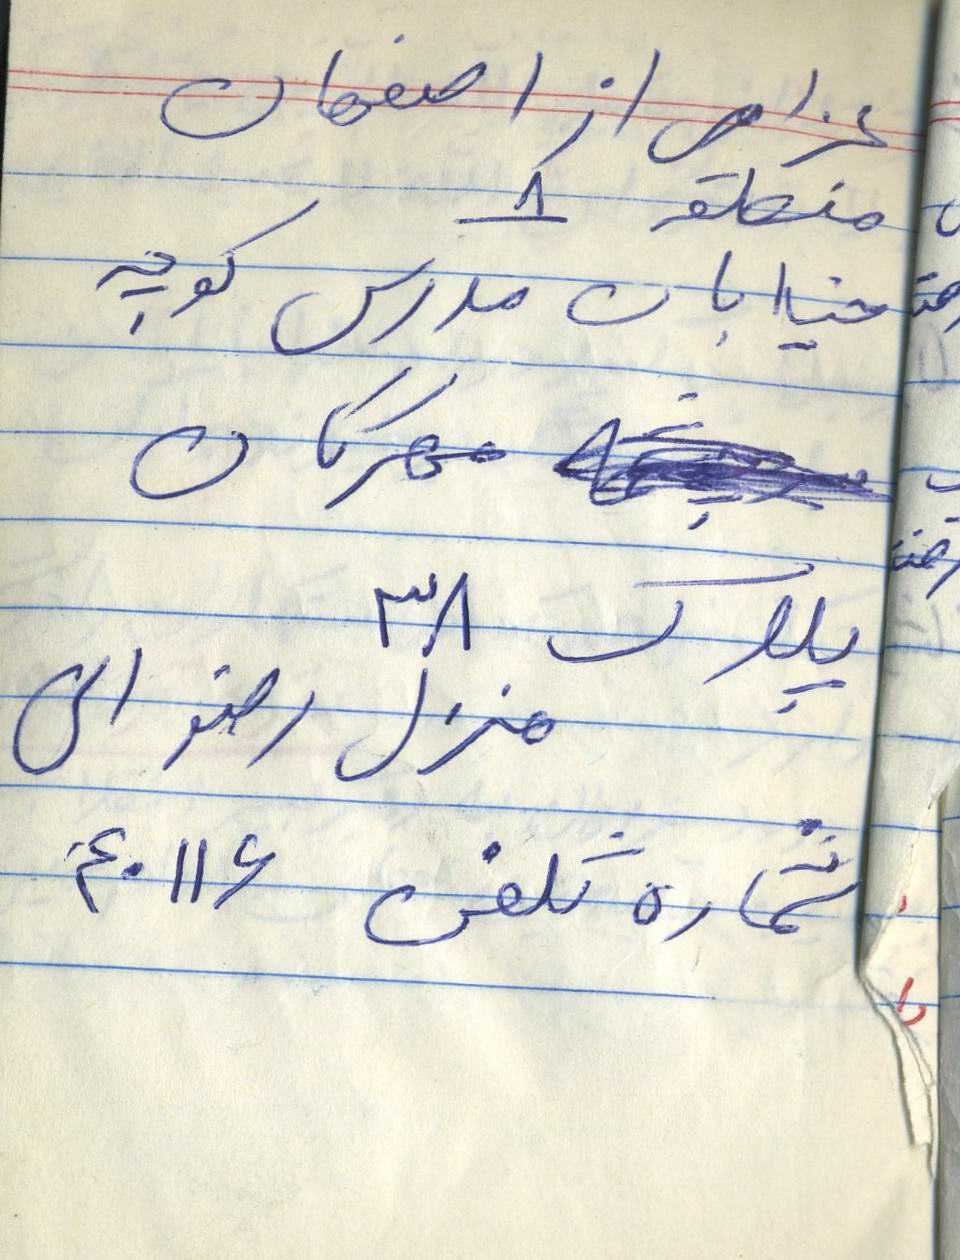 اعزامی از اصفهان
منطقه ۸
خیابان مدرس کوچه
مهرگان
پلاک ۳۸
منزل رضوانی
شماره تلفن ۴۰۱۱۶